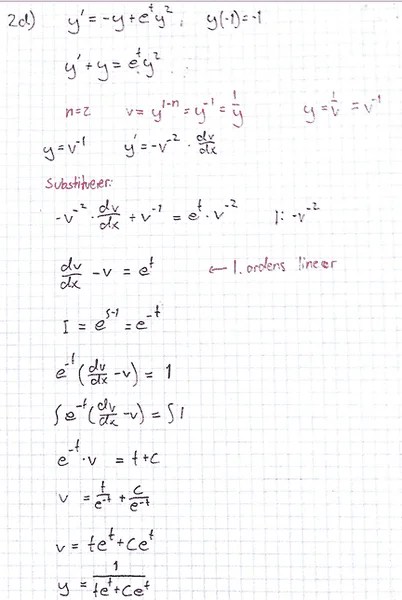 2d) y' = -y + e^t y^2, y(-1) = -1
y' + y = e^t y^2
n=2 v = y^{1-n} = y^{-1} = 1/y y = 1/v = v^{-1}
y = v^{-1} y' = -v^{-2} · dv/dx
Substituerer:
-v^{-2} · dv/dx + v^{-1} = e^t · v^{-2} |: -v^{-2}
dv/dx - v = e^t ← 1. ordens lineær
I = e^{∫-1} = e^{-t}
e^{-t} (dv/dx - v) = 1
∫ e^{-t} (dv/dx - v) = ∫ 1
e^{-t} · v = t + C
v = t/e^{-t} + C/e^{-t}
v = te^t + Ce^t
y = 1/(te^t + Ce^t)